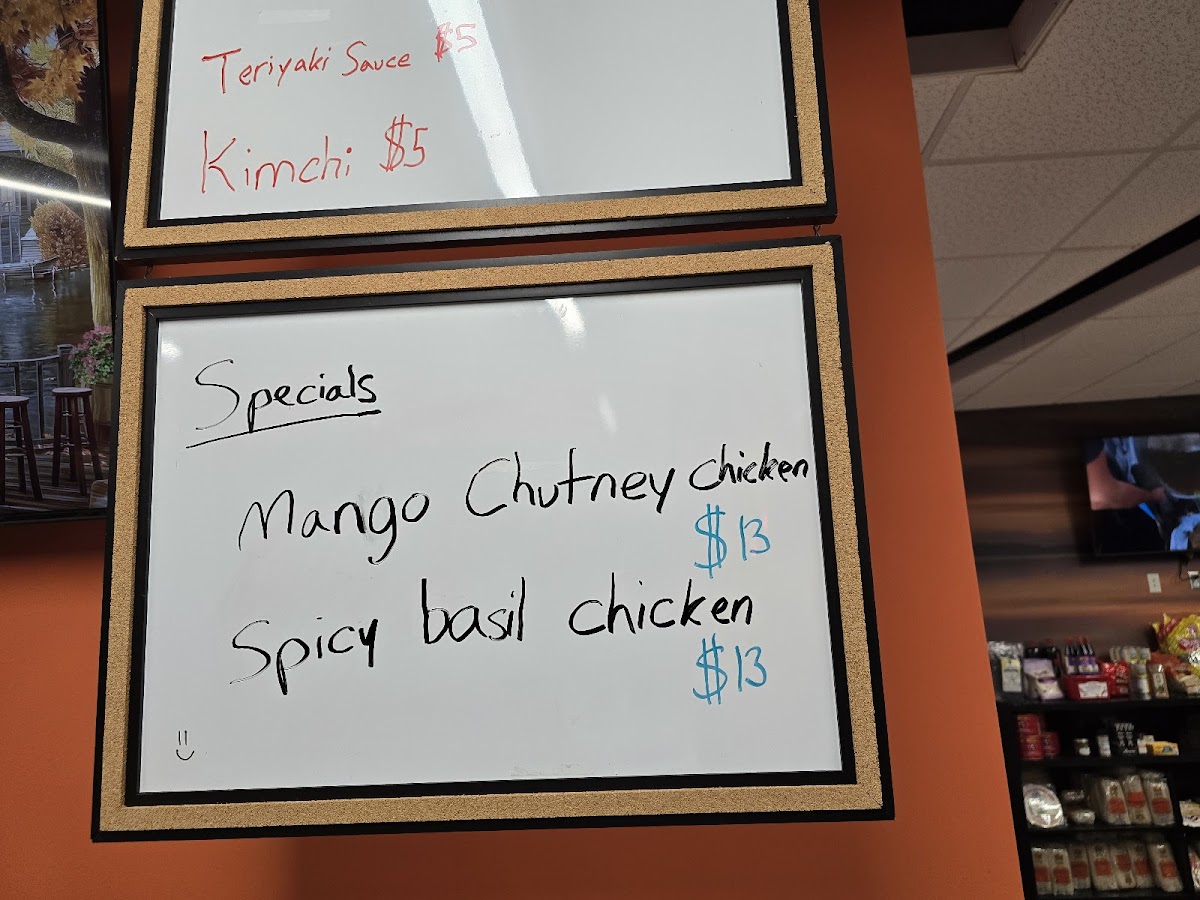 Teriyaki Sauce $5
Kimchi $5
Specials
Mango Chutney chicken
$13
Spicy basil chicken
$13